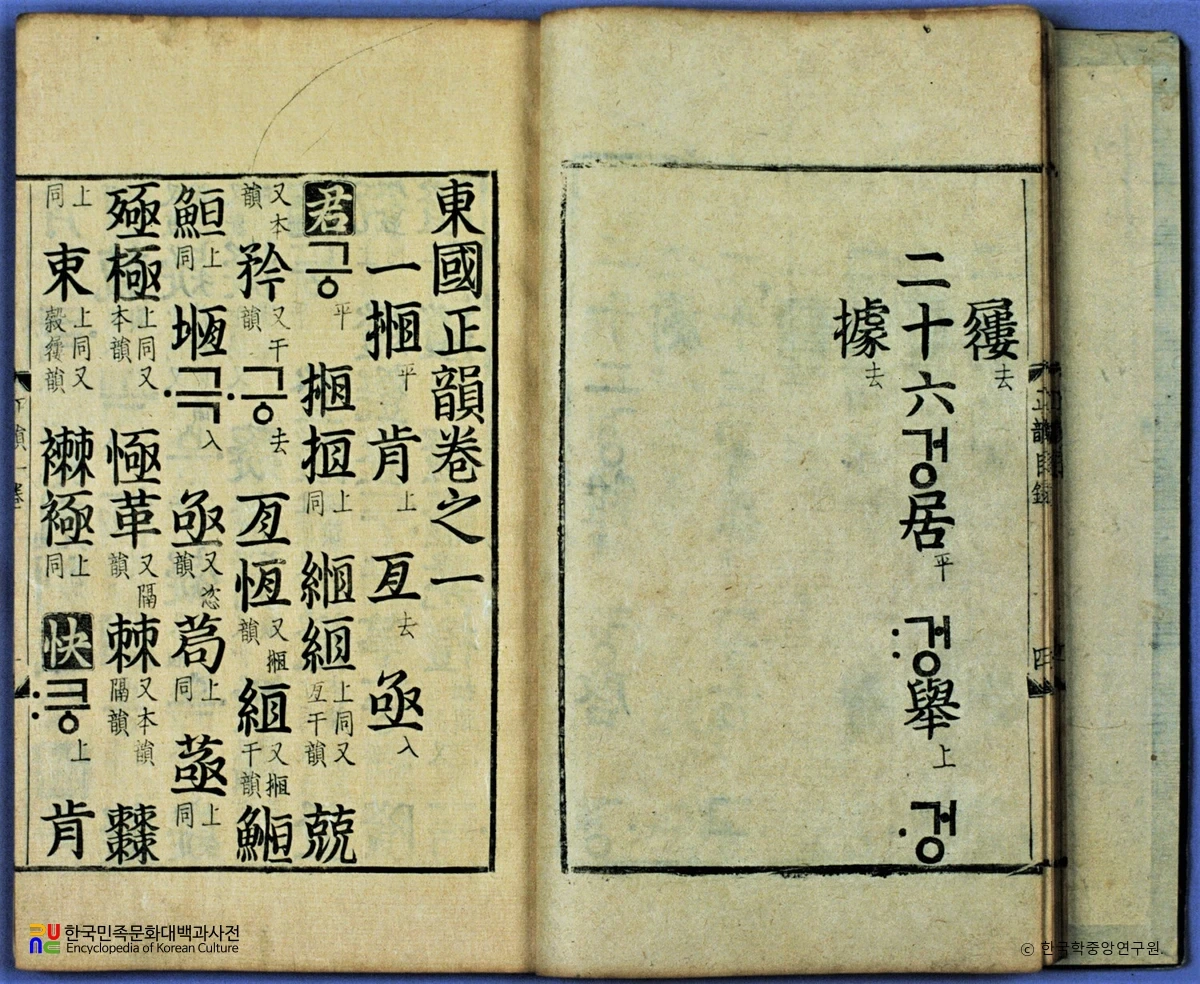 屨去
二十六겅居平 :겅舉上 ·겅
據去
正韻目錄 四
東國正韻卷之一
一揯平 肯上 亙去 亟入
君그ᇰ平 揯搄上同 緪絚上同又亙干韻 兢
又本韻 矜又干韻 ·그ᇰ去 亙恆又揯韻 絚又揯干韻 䱭
䱎上同 堩·극入 亟又韻 茍上同 上同
殛極上同又本韻 㥛革又隔韻 棘又本韻隔韻
上同 上同又韻 襋上同 快:크ᇰ上 肯
한국민족문화대백과사전
Encyclopedia of Korean Culture
© 한국학중앙연구원.